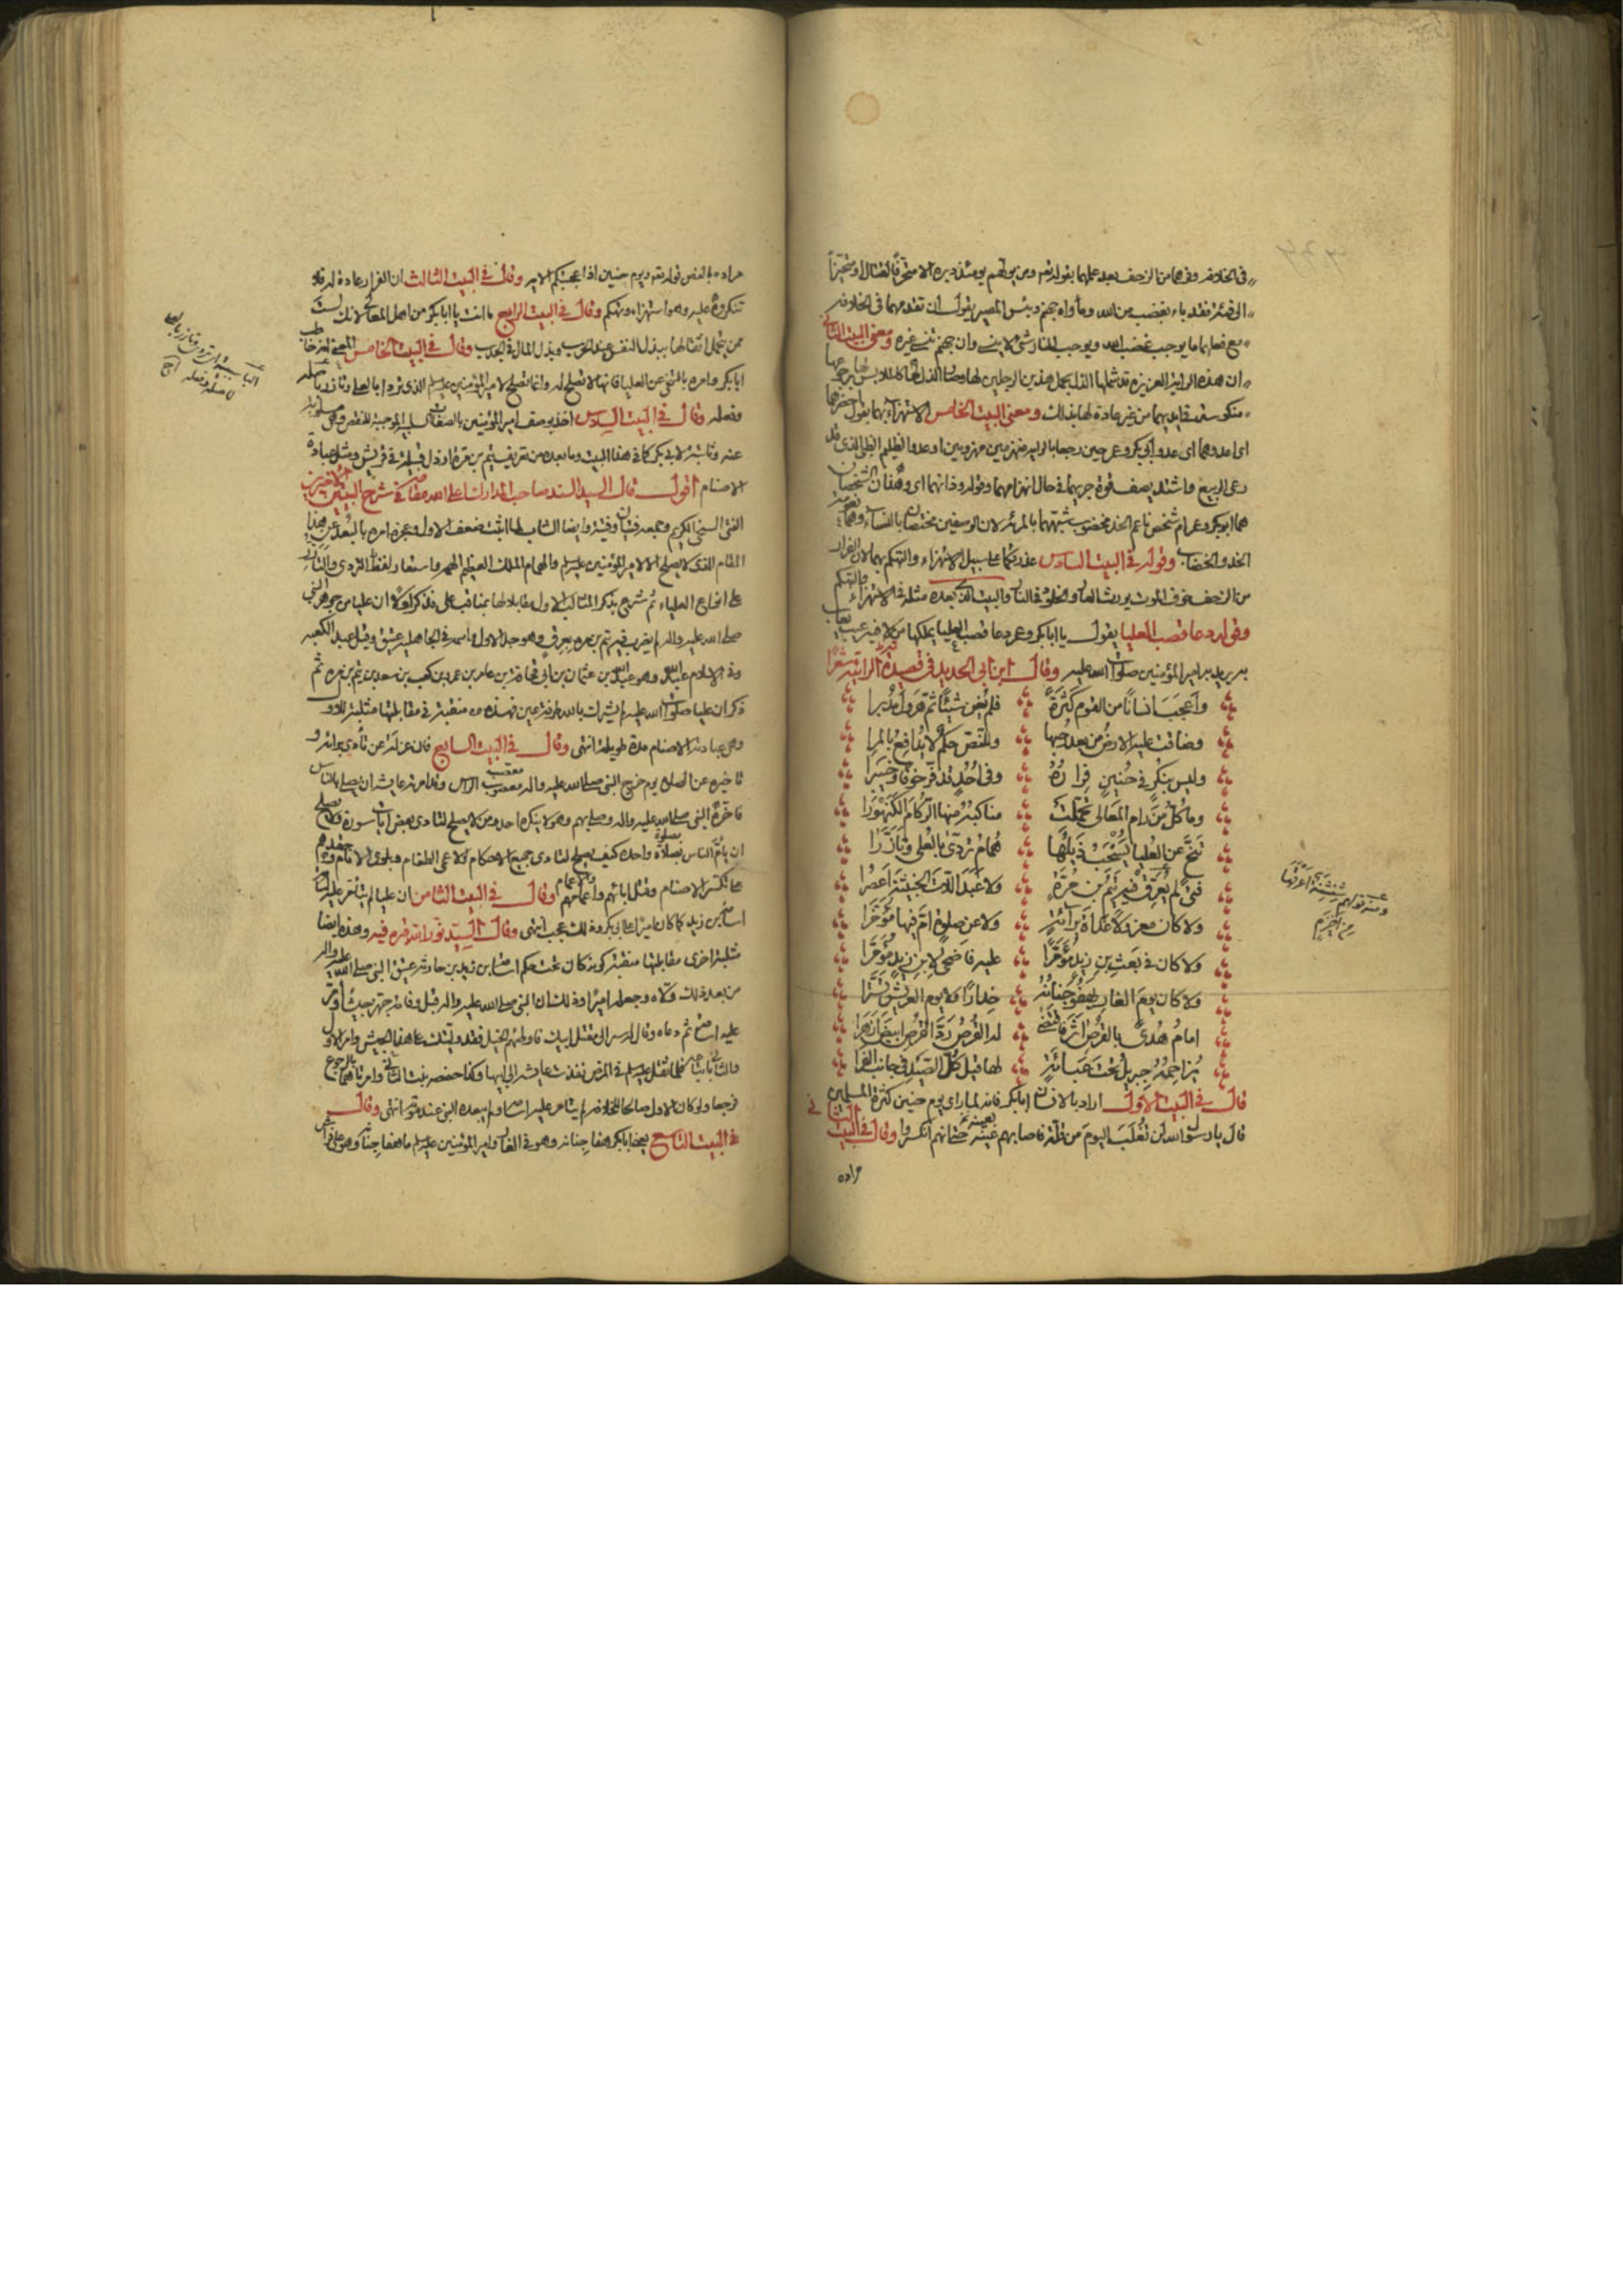 في الخلافة وفرهما من الزحف بعد علمهما بقوله تعه ومن يولهم يومئذ دبره الا متحرفا لقتال او متحيزا
الى فئة فقد باء بغضب من الله ومأواه جهنم وبئس المصير يقول ان تقدمهما في الخلافة
مع فعلهما ما يوجب غضب الله ويوجب النار شئ لا ينسى وان جهم نسي غيره ومعنى البيت الثاني
ان هذه الراية العزيزة قد شملها الذل بحمل هذين الرجلين لها
منكوسة من غير عادة لها بذلك ومعنى البيت الخامس الاستهزاء بهما يقول
اى عدوهما اى عدو ابي بكر وعمر حين رجعا بالراية منهزمين او عدو الظليم الذى قد
رعى الربيع واشتد يصف قوة جريهما في حال انهزامهما وقوله وذانهما اى وهذان الشخصان
هما ابو بكر وعمر ام شخص ناعم الخد مخضوب شبههما بالمرئة لان الوصفين مختصان بالنساء وهما نعومة
الخد والخضاب وقوله في البيت السادس عذرتكما على سبيل الاستهزاء والتهكم بهما لان الفرار
من الزحف خوف الموت يورث العار والخلود في النار والبيت الذى بعده مثله في الاستهزاء والتهكم
وقوله دعا قصب العليا يقول يا ابا بكر وعمر دعا قصب العليا يملكها من لا فيه عيب يعاب
به يريد به امير المؤمنين صلوات الله عليه وقال ابن ابي الحديد في قصيدة الرائية شعرا
واعجب انسانا من القوم كثرة فلم يغن شيئا ثم هرول مدبرا
وضاقت عليه الارض من بعد رحبها وللنص حكم لا يدافع بالمرا
وليس بنكر في حنين فراره وفي احد قد فر خوفا وخيبرا
وما كل من رام المعالي تحملت مناكبه منها الركام الكنهورا
تنح عن العليا يسحب ذيلها همام تردى بالعلى وتأزرا
فتى لم يعرق فيه تيم بن مرة ولا عبد اللات الخبيثة اعصرا
ولا كان معزولا غداة برائة ولا عن صلوة ام فيها مؤخرا
ولا كان في بعث بن زيد مؤمرا عليه فاضحى لابن زيد مؤمرا
ولا كان يوم الغار يهفو جنانه حذارا ولا يوم العريش تسترا
امام هدى بالقرص اثر فاقتضى له القرص رد القرص ابيض ازهرا
يزاحمه جبريل تحت عبائة لها قيل كل الصيد في جانب الفرا
قال في البيت الاول اراد بالانسان ابا بكر فانه لما راى يوم حنين كثرة المسلمين
قال يا رسول الله لن نغلب اليوم من قلة فاصابهم بعينه حتى انهم انكسروا وقال في البيت الثاني
مراده
ومنه قولهم شنشنة اعرفها
من اخزم
مراده بالنص قوله تعه ويوم حنين اذ اعجبتكم الاية وقال في البيت الثالث ان الفرار عادة له فلا
تنكروه عليه وهو استهزاء وتهكم وقال في البيت الرابع ما انت يا ابا بكر من اهل المعالى لانك لست
ممن يتحمل اثقالها ببذل النفس عند الحرب وبذل المال في الجدب وقال في البيت الخامس المعنى انه خاطب
ابا بكر وامره بالتنحى عن العليا فانها لا تصلح له وانما تصلح لامير المؤمنين عليه السلم الذى تردا بالعلى وتأزر باصله
وفصله وقال في البيت السادس اخذ يوصف امير المؤمنين بالصفات السلبية الموجبة للنقص وهى مسلوبة
عنه وثابتة لابي بكر كما في هذا البيت وما بعده من تعريف تيم بن مرة ارذل قبيلة في قريش ومثل عبادة
الاصنام اقول قال السيد السند صاحب المدارك اعلى الله مقامه في شرح البيتين الاخيرين
الفتى السخى الكريم وجمعه فتيان وفتية وايضا الشاب لما اثبت ضعف الاول وعجزه امره بالبعد عن هذا
المقام الذى لا يصلح الا لامير المؤمنين عليه السلم والهمام الملك العظيم الهمة واستعار لفظ التردى والتأزر
على انواع العلياء ثم شرع بذكر المثالب للاول مقابلا لها بمناقب على فذكر اولا ان عليا من جوهر النبى
صلى الله عليه واله لم يضرب فيه تيم بن مره بعرق وهو جد الاول واسمه في الجاهلية عتيق وقيل عبد الكعبه
وفى الاسلام عبد الله وهو عبد الله بن عثمان بن ابي قحافة بن عامر بن عمرو بن كعب بن سعد بن تيم بن مرة ثم
ذكر ان عليا صلوات الله عليه لم يشرك بالله طرفة عين فهذه منقبة في مقابلتها مثلبة للاول
وهى عبادته الاصنام مدة طويلة انتهى وقال في البيت السابع فان عزله عن تأدى برائة و
تاخيره عن الصلوة يوم خرج النبى صلى الله عليه واله معصوب الراس وقد امرته عايشه ان يصلى بالناس
فاخره النبى صلى الله عليه واله وصلى بهم وهو لا ينكره احد ومن لا يصلح لتادى بعض ايات سورة ولا يصلح
ان يأم الناس بصلاة واحدة كيف يصلح لتادى جميع الاحكام
تكسر الاصنام وقتل ابائهم واعمامهم وقال في البيت الثامن ان عليا لم يتأمر عليه
اسامة بن زيد كما كان اميرا على ابي بكر وذلك عجب انتهى وقال السيد نور الله قبره فيه وهذه ايضا
مثلبة اخرى مقابلتها منقبة كونه كان تحت حكم اسامة بن زيد بن حارثة عتيق النبى صلى الله عليه واله
من بعد ذلك ولاه وجعله اميرا وذلك ان النبى صلى الله عليه واله قبل وفاته جهز جيشا وامر
عليه اسامة ثم دعاه وقال له سر الى مقتل ابيك فاوطئهم الخيل فقد وليتك على هذا الجيش وامر الاول
والثانى فلما ثقل عليه السلم في المرض نفذت عايشه الى ابيها وكذا حفصه بنت الثانى وامرتاهما بالرجوع
فرجعا ولو كان الاول صالحا للخلافة لم يتامر عليه اسامة ولم يبعده النبى عند موته انتهى وقال
في البيت التاسع يعنى ابا بكر هفا جنانه وهو في الغار وامير المؤمنين عليه السلم ما هفا جنانه وهو على فراش